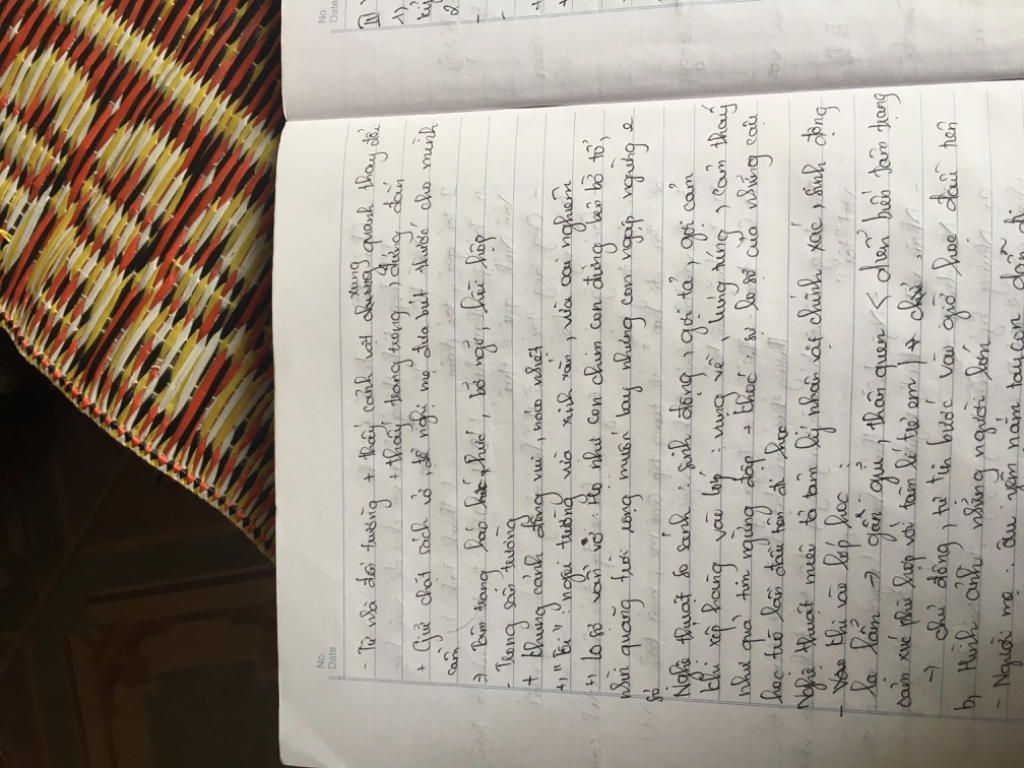 No.
Date
- Từ nhà đới trường + thấy cảnh vật chung quanh thay đổi
xung
+ thấy trang trọng, đứng đắn
+ Giữ chặt sách vở, đề nghị mẹ đưa bút thước cho mình
cầm
→ Tâm trạng háo hức, bỡ ngỡ, hồi hộp
- Trong sân trường
+ khung cảnh đông vui, náo nhiệt
+, "Tôi": ngôi trường vừa xinh xắn, vừa oai nghiêm
+, lo sợ vẩn vơ. Họ như con chim con đứng bên bờ tổ,
nhìn quãng trời rộng muốn bay nhưng còn ngập ngừng e
sợ
Nghệ thuật so sánh: sinh động, gợi tả, gợi cảm
khi xếp hàng vào lớp: vụng về, lúng túng, cảm thấy
như quả tim ngừng đập + khóc: sự lo sợ của những cậu
học trò lần đầu tiên đi học
Nghệ thuật miêu tả tâm lý nhân vật chính xác, sinh động
- khi vào lớp học:
lạ lẫm → gần gũi, thân quen < diễn biến tâm trạng
cảm xúc phù hợp với tâm lí trẻ em
→ chủ động, tự tin bước vào giờ học đầu tiên
b, Hình ảnh những người lớn
- Người mẹ: âu yếm nắm tay con dẫn đi
No.
Date
II
1)
2
-
-
+
+